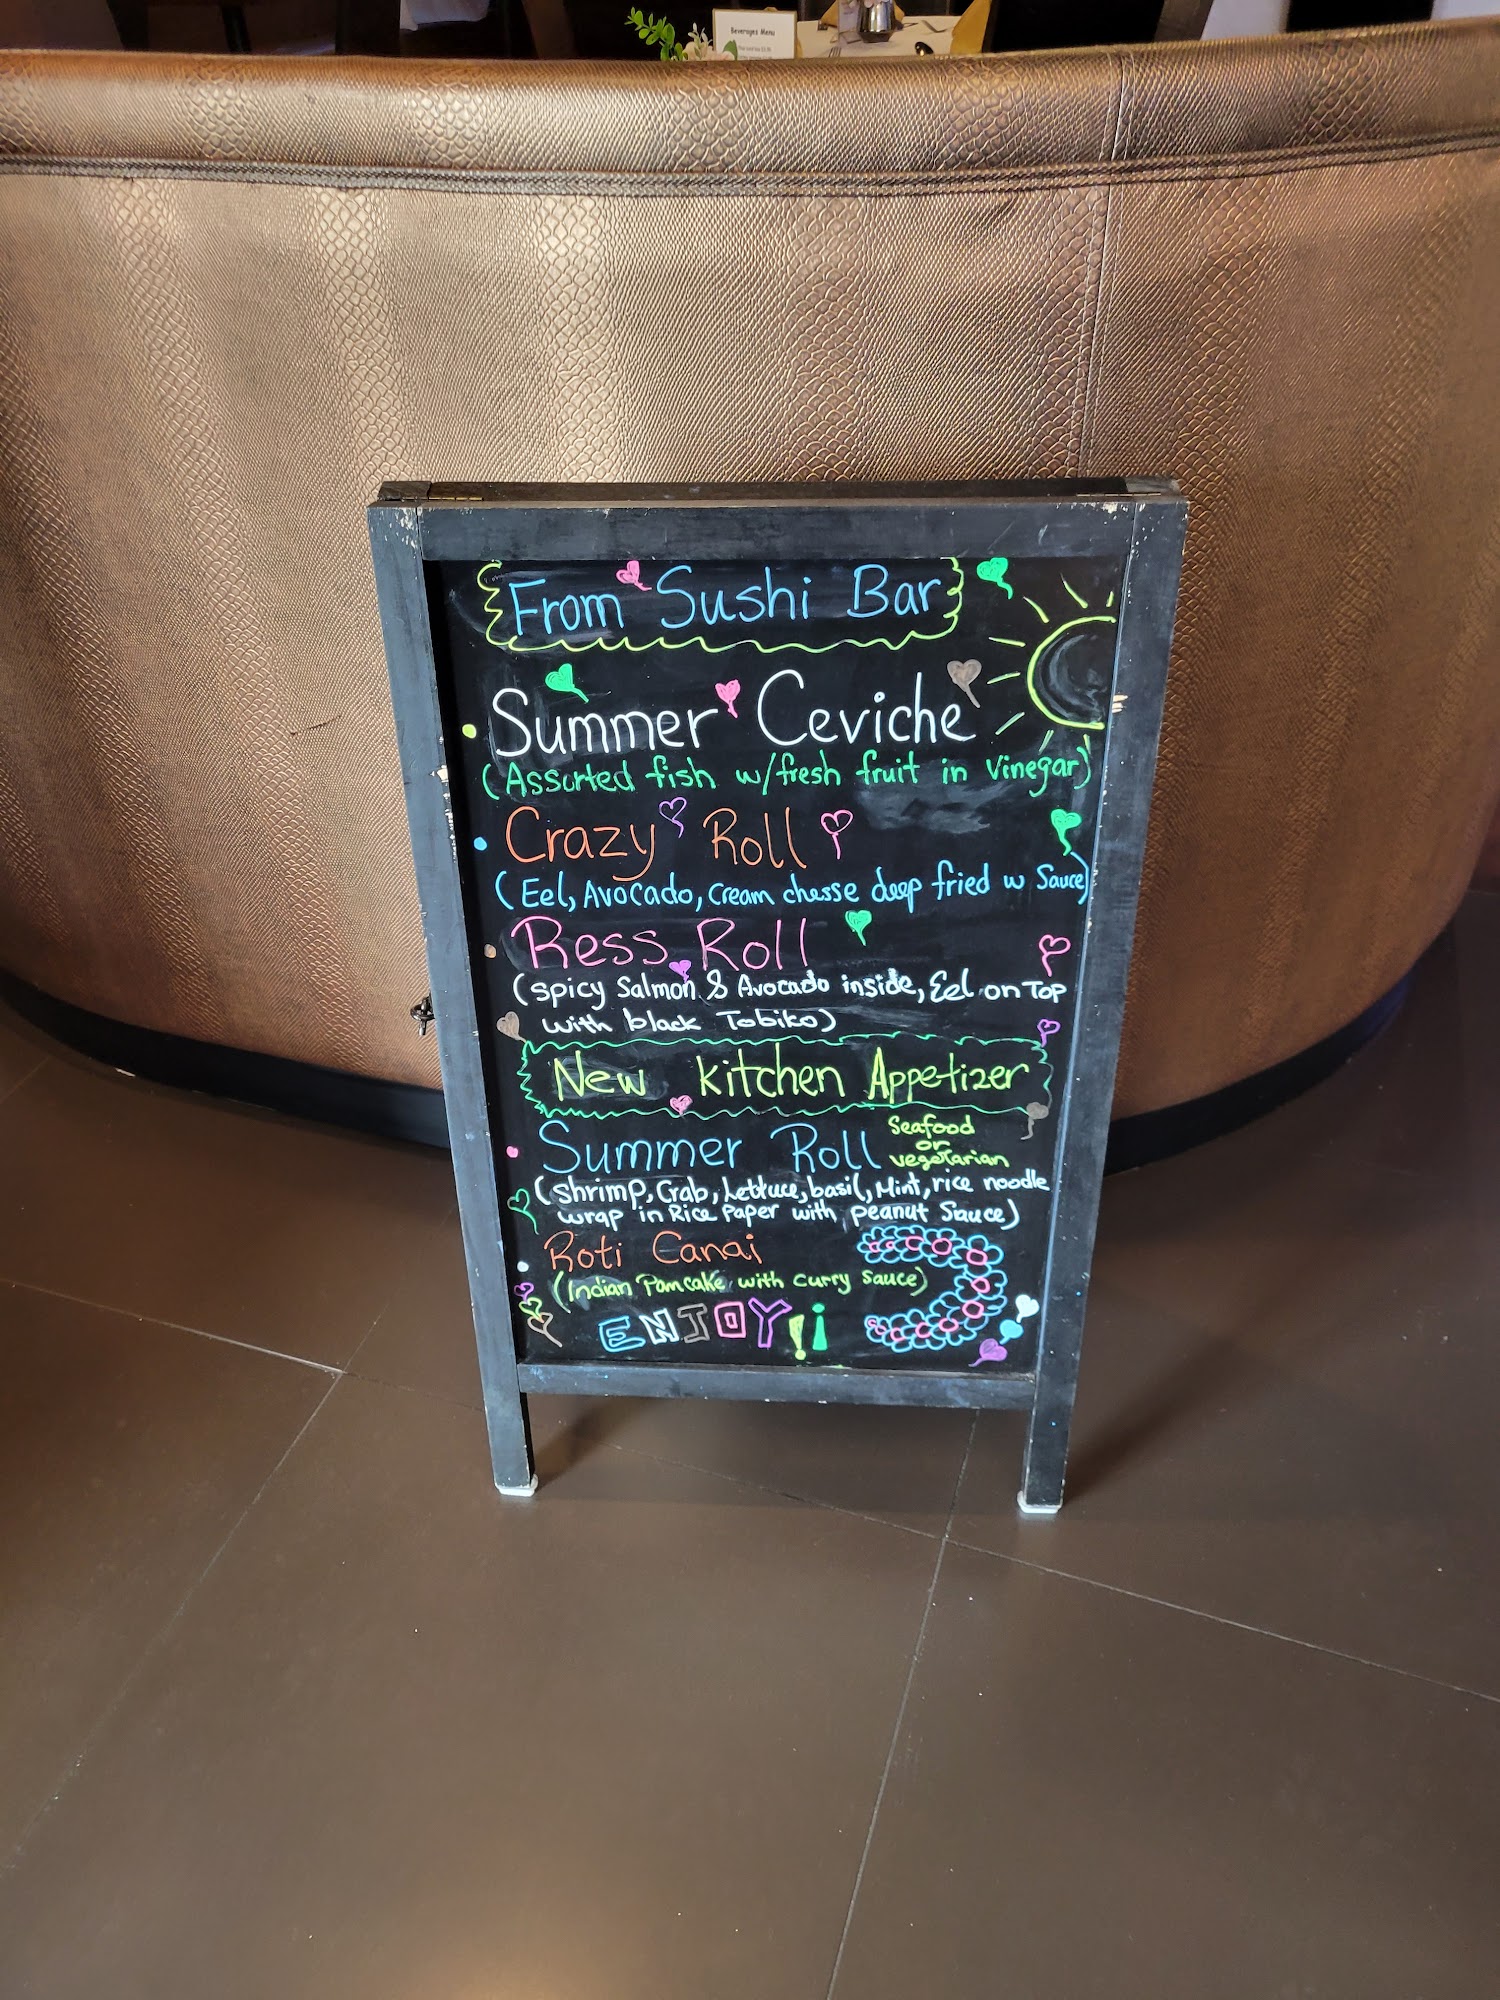 Beverages Menu
From Sushi Bar
Summer Ceviche
(Assorted fish w/fresh fruit in Vinegar)
Crazy Roll
(Eel, Avocado, cream chesse deep fried w Sauce)
Ress Roll
(spicy Salmon & Avocado inside, Eel on Top
with black Tobiko)
New kitchen Appetizer
Summer Roll
Seafood
or
vegetarian
(shrimp, Crab, Lettuce, basil, Mint, rice noodle
wrap in Rice Paper with peanut Sauce)
Roti Canai
(Indian Pamcake with curry sauce)
ENJOY!!